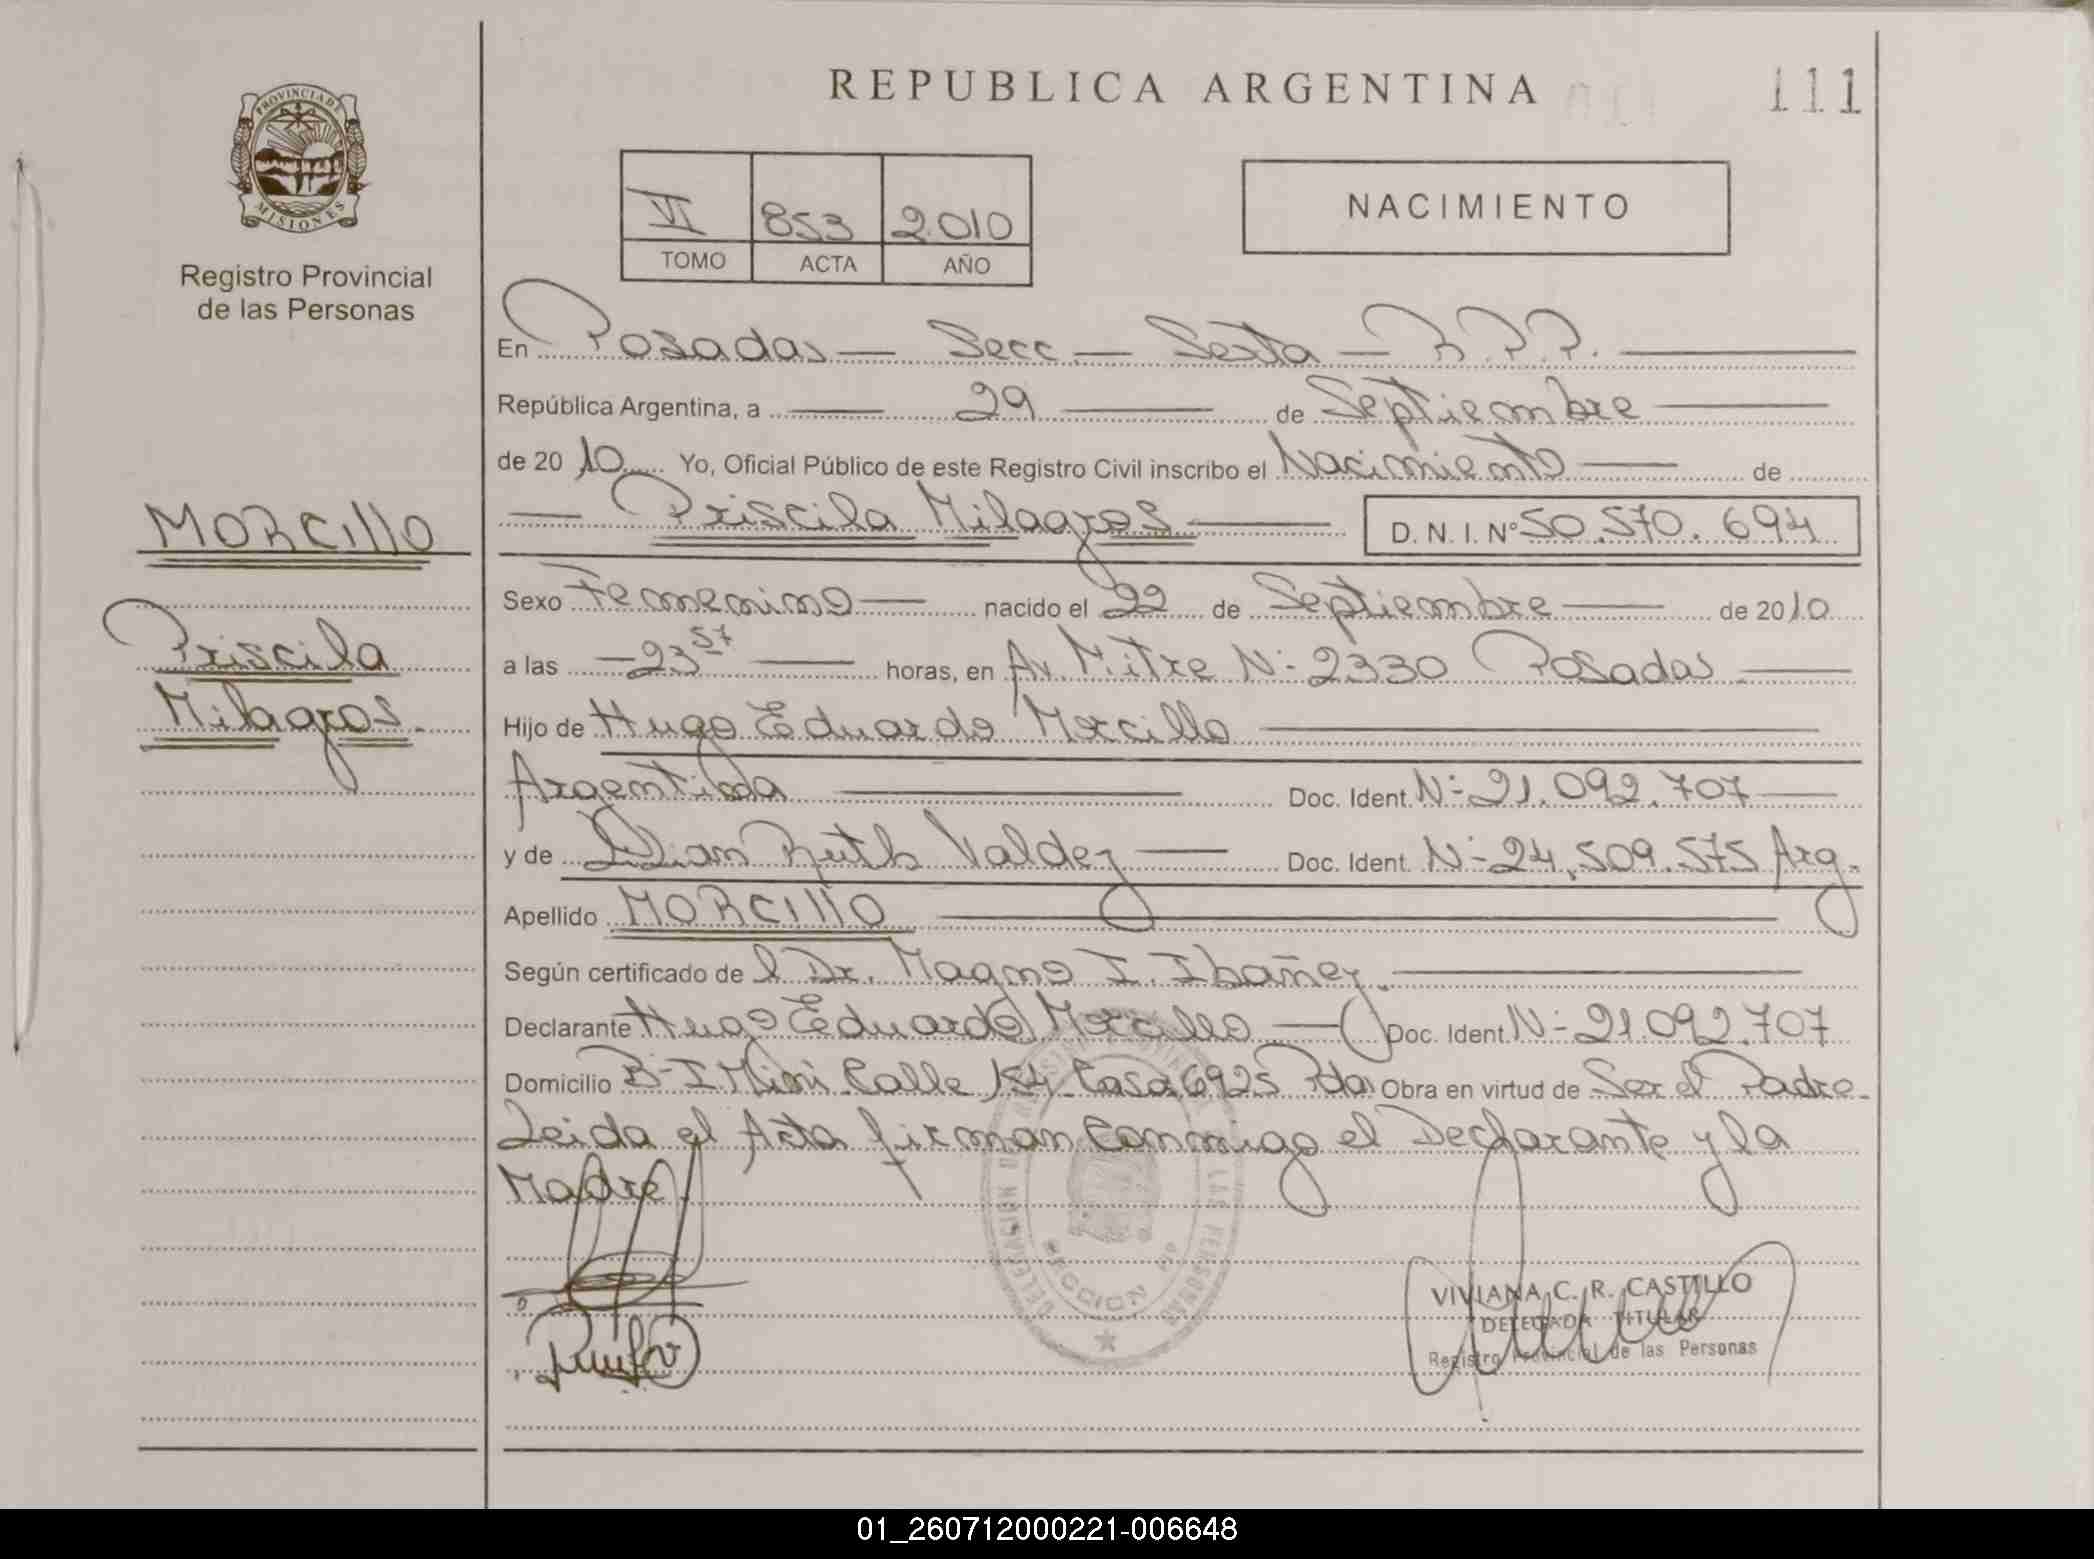 REPUBLICA ARGENTINA
111
PROVINCIA DE
MISIONES
Registro Provincial
de las Personas
VI 853 2.010
TOMO ACTA AÑO
NACIMIENTO
En Posadas — Secc — Sexta — R.P.P.
República Argentina, a — 29 — de Septiembre
de 2010 Yo, Oficial Público de este Registro Civil inscribo el Nacimiento — de
— Priscila Milagros — D. N. I. Nº 50.570.694
MORCIllO
Priscila
Milagros.
Sexo Femenino — nacido el 22 de Septiembre — de 2010
a las — 23 57 — horas, en Av. Mitre Nº 2330 Posadas —
Hijo de Hugo Eduardo Morcillo
Argentina — Doc. Ident. Nº 21.092.707 —
y de Lilian Ruth Valdez — Doc. Ident. Nº 24.509.575 Arg.
Apellido MORCIllO
Según certificado de l Dr. Magno I. Ibañez.
Declarante Hugo Eduardo Morcillo — Doc. Ident. Nº 21.092.707
Domicilio Bº I Mini Calle 154 Casa 6925 Pdas Obra en virtud de Ser el Padre.
Leida el Acta firman Conmigo el Declarante y la
Madre.
DELEGACION
LAS PERSONAS
SECCION
VIVIANA C. R. CASTILLO
DELEGADA TITULAR
Registro Provincial de las Personas
01_260712000221-006648